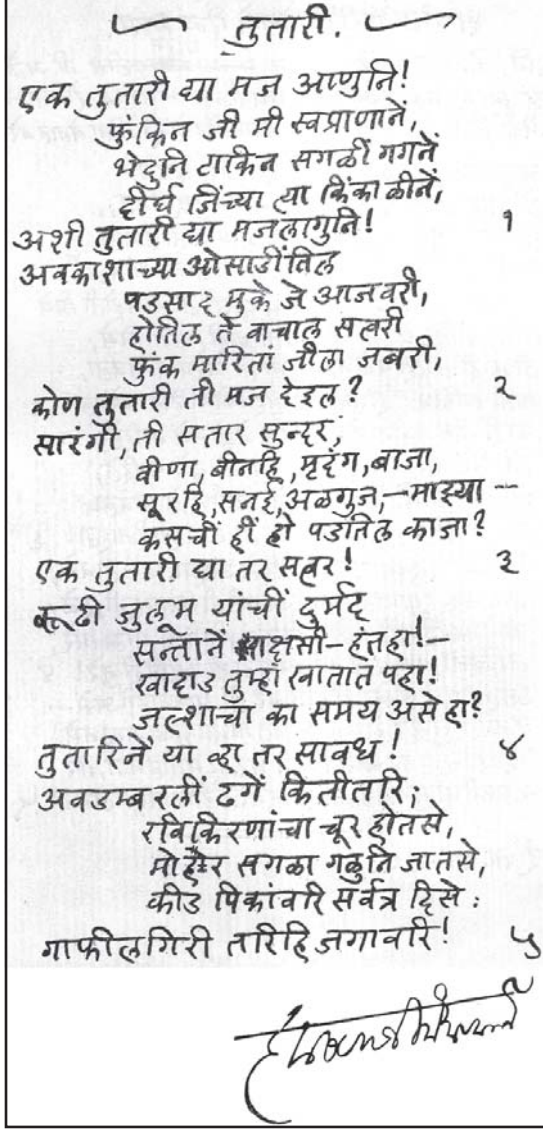 तुतारी.
एक तुतारी द्या मज आणुनि!
फुंकिन जी मी स्वप्राणानें,
भेदुनि टाकिन सगळीं गगनें
दीर्घ जिंच्या त्या किंकाळीनें,
अशी तुतारी द्या मजलागुनि! १
अवकाशाच्या ओसाडींतिल
पडसाद मुके जे आजवरी,
होतिल ते वाचाल सत्वरी
फुंक मारितां जीला जबरी,
कोण तुतारी ती मज देइल? २
सारंगी, ती सतार सुन्दर,
वीणा, बीनहि, मृदंग, बाजा,
सूरहि, सनई, अळगुज, – माझ्या –
कसचीं हीं हो पडतिल काजा?
एक तुतारी द्या तर सत्वर! ३
रूढी जुलूम यांचीं दुर्मद
सन्तानें राक्षसी – हंतहा! –
खादाड तुम्हां खातात पहा!
जल्शाचा का समय असे हा?
तुतारिनें या व्हा तर सावध! ४
अवडम्बरलीं ढगें कितीतरी;
रविकिरणांचा चूर होतसे,
मोहोर सगळा गळुनि जातसे,
कीड पिकांवरि सर्वत्र दिसे:
गाफीलगिरी तरिहि जगावरि! ५